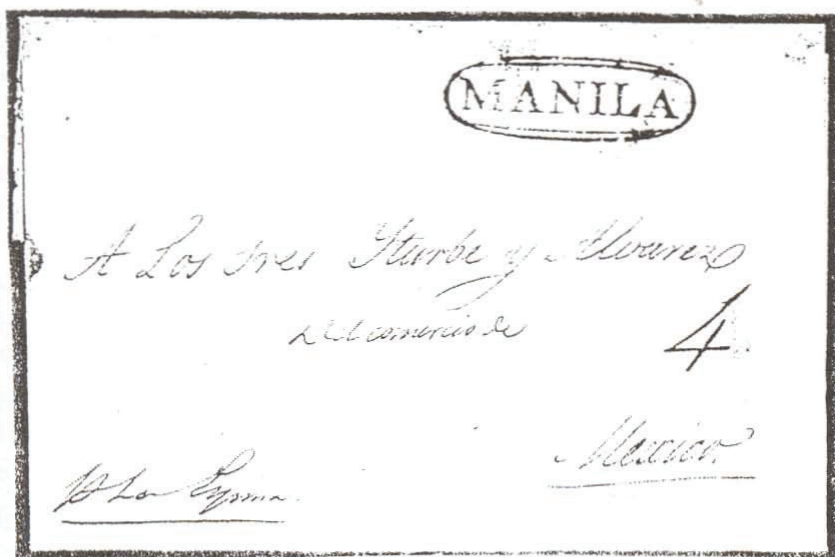 MANILA
A Los Sres Yturbe y Alvarez
Del comercio de
4
Mexico.
P La